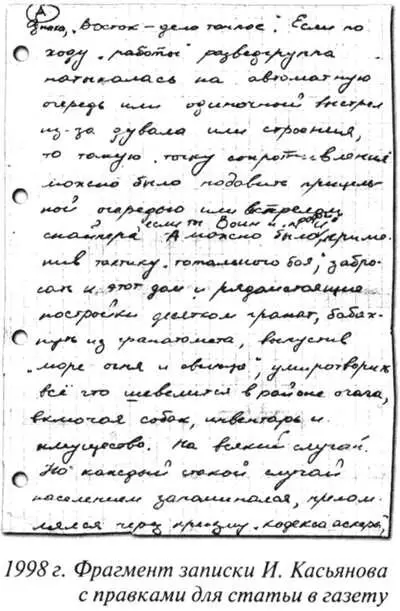 А
Знаю, „Восток – дело тонкое". Если по
ходу „работы" разведгруппа
натыкалась на автоматную
очередь или одиночный выстрел
из-за дувала или строения,
то такую точку сопротивления
можно было подавить прицель-
ной очередью или выстрелом
если ты Воин и
снайпера. А можно было, приме-
нив тактику „тотального боя", забро-
сать и этот дом и рядомстоящие
постройки десятком гранат, бабах-
нуть из гранатомета, выпустив
„море огня и свинца", умиротворить
всё что шевелится в районе очага,
включая собак, инвентарь и
имущество. На всякий случай.
Но каждый такой случай
населением запоминался, прелом-
лялся через призму „кодекса аскера",
1998 г. Фрагмент записки И. Касьянова
с правками для статьи в газету